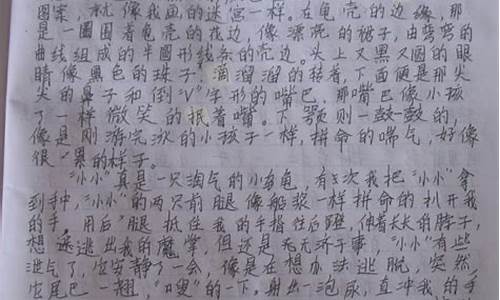 图案,就像我画的迷宫一样。在龟壳的边缘,那
是一圈围着龟壳的花边,像漂亮的裙子,由弯弯的
曲线组成的半圆形线条的壳边。头上又黑又圆的眼
睛像黑色的珠子,滴溜溜的转着,下面便是那尖
尖的鼻子和倒“V”字形的嘴巴,那嘴巴像小孩
子一样微笑的抿着嘴。下颚则一鼓一鼓的,
像是刚游完泳的小孩子一样,拼命的喘气,好像
很累的样子。
“小小”真是一只淘气的小乌龟,有一次我把“小小”拿
到手中,“小小”的两只前腿像船桨一样拼命的扒开我
的手,用后腿抵住我的手指往后蹬,伸着长长的脖子,
想逃出我的魔掌,但还是无济于事。“小小”有些
泄气了,它安静了一会,像是在想办法逃脱,突然
它尾巴一翘,“嗖”的一下,射出一泡尿,直冲我的手